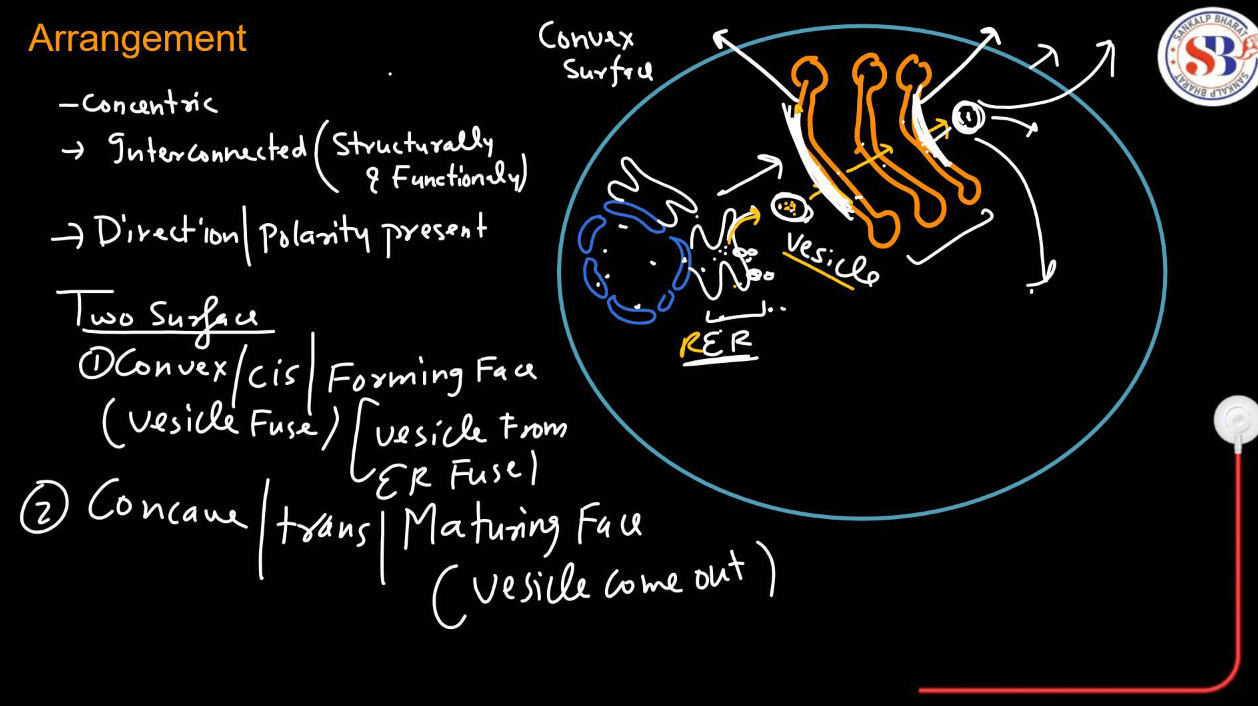 Arrangement
- Concentric
→ Interconnected (Structurally
& Functionaly)
→ Direction/polarity present
Two Surface
① Convex/cis/Forming Face
(vesicle Fuse) [vesicle from
ER Fuse]
② Concave/trans/Maturing Face
(vesicle come out)
Convex
Surface
vesicle
RER
SANKALP BHARAT
SB
SANKALP BHARAT